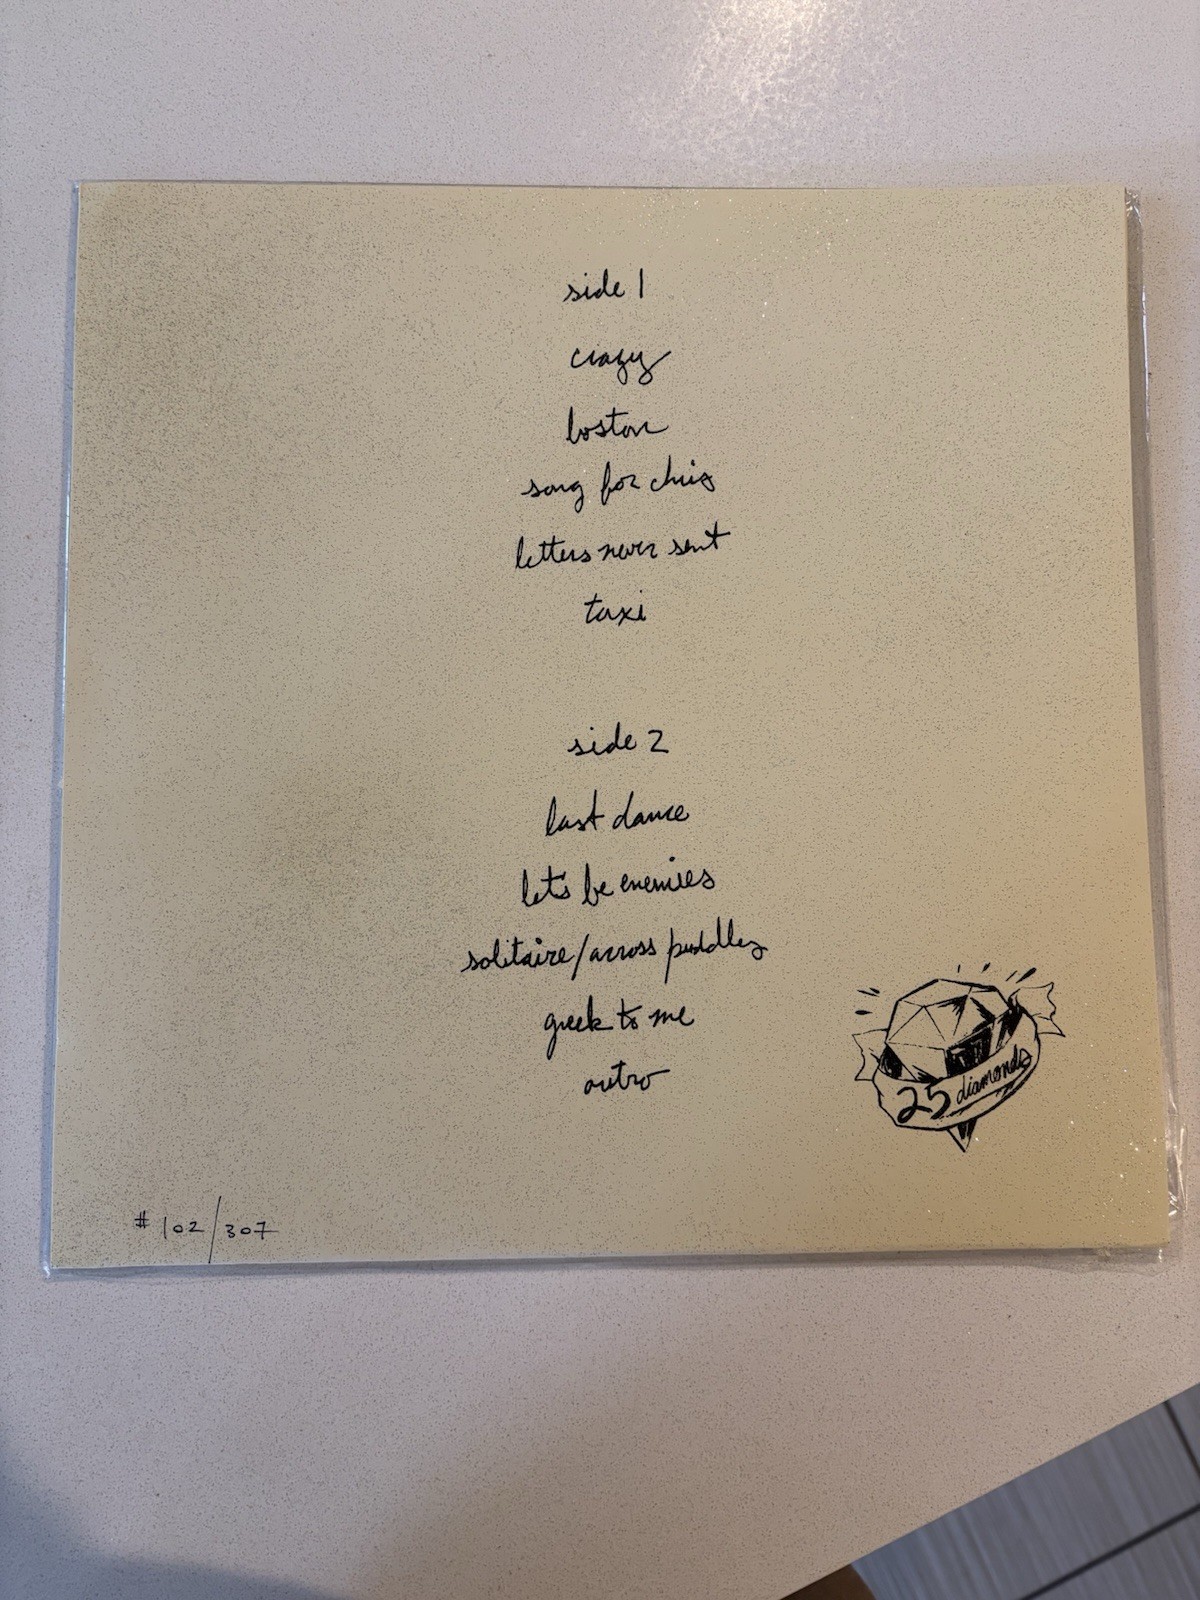 side 1
crazy
boston
song for chris
letters never sent
taxi
side 2
last dance
let's be enemies
solitaire/across puddles
greek to me
outro
25 diamonds
# 102/307